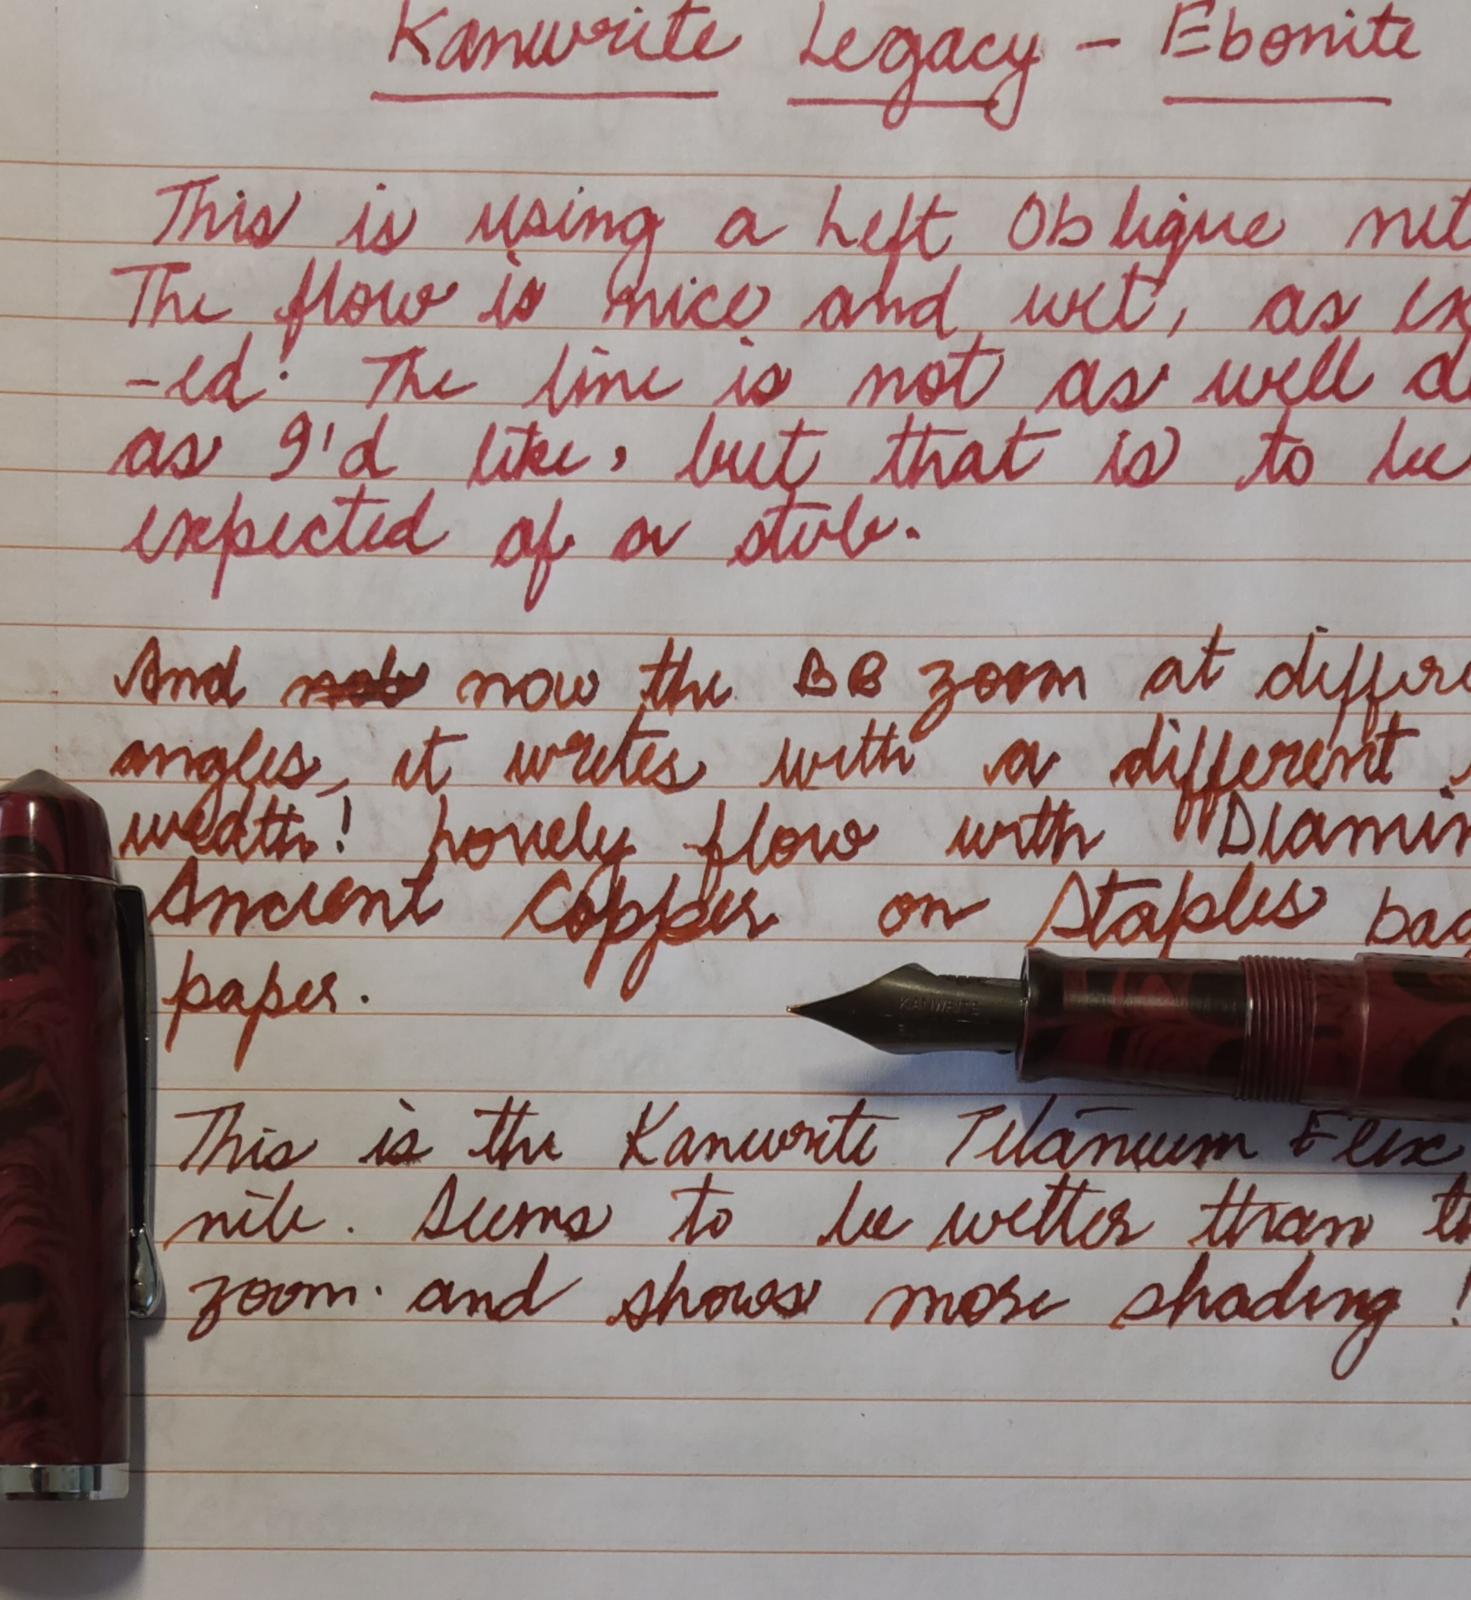 Kanwrite Legacy - Ebonite
This is using a Left Oblique
The flow is nice and wet, as ex
-ed. The line is not as well d
as I'd like, but that is to be
expected of a stub.
And now the BB zoom at differe
angles, it writes with a different
width! Lovely flow with Diamin
Ancient Copper on Staples bag
paper.
KANWRITE
This is the Kanwrite Titanium Flex
nib. Seems to be wetter than th
zoom. and shows more shading!